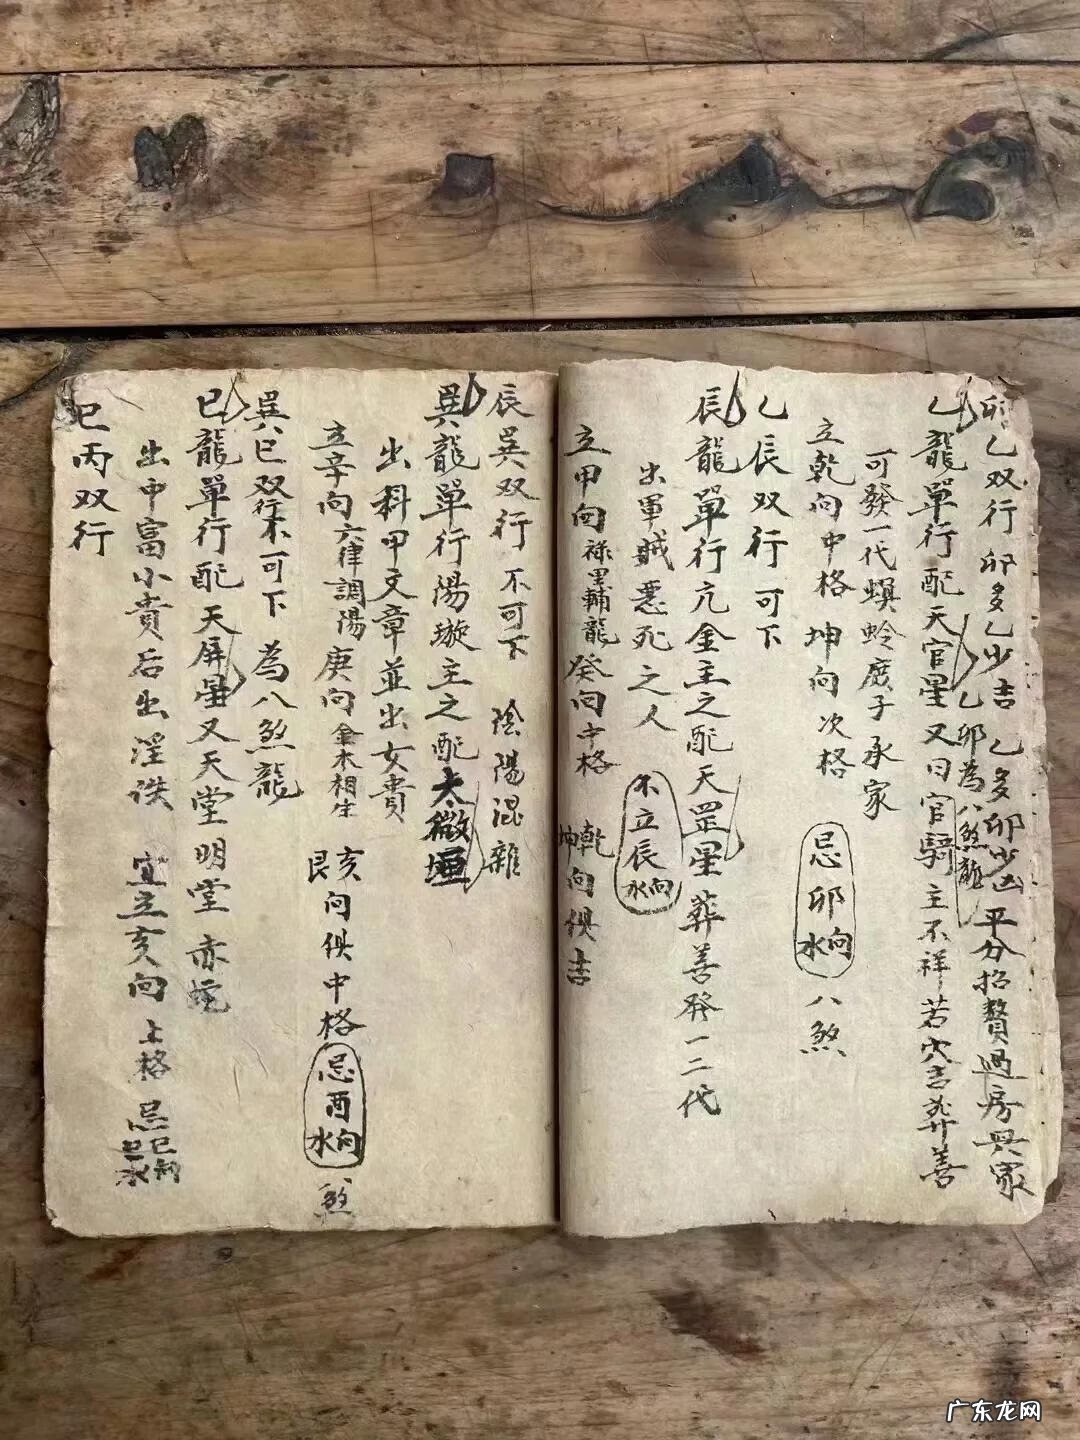 卯乙双行 卯多乙少吉 乙多卯少凶 平分招贅過房興家
乙卯為八煞龍
乙龍單行配天官星又曰官騎主不祥若穴吉葬善
可發一代螟蛉庶子承家
立乾向中格 坤向次格 忌卯向水 八煞
乙辰双行 可下
辰龍單行亢金主之配天罡星葬善發一二代
出軍賊惡死之人 不立辰向水
立甲向祿里輔龍 癸向中格 乾坤向俱吉
辰巽双行不可下 陰陽混雜
巽龍單行陽璇主之配太微垣
出科甲文章並出女貴
立辛向六律調陽 庚向金木相生 亥艮向俱中格 忌酉向水 八煞
巽巳双行不可下 為八煞龍
巳龍單行配天屏星又天堂明堂赤蛇
出中富小貴后出淫泆 宜立亥向上格 忌巳向巳水
巳丙双行
广东龙网